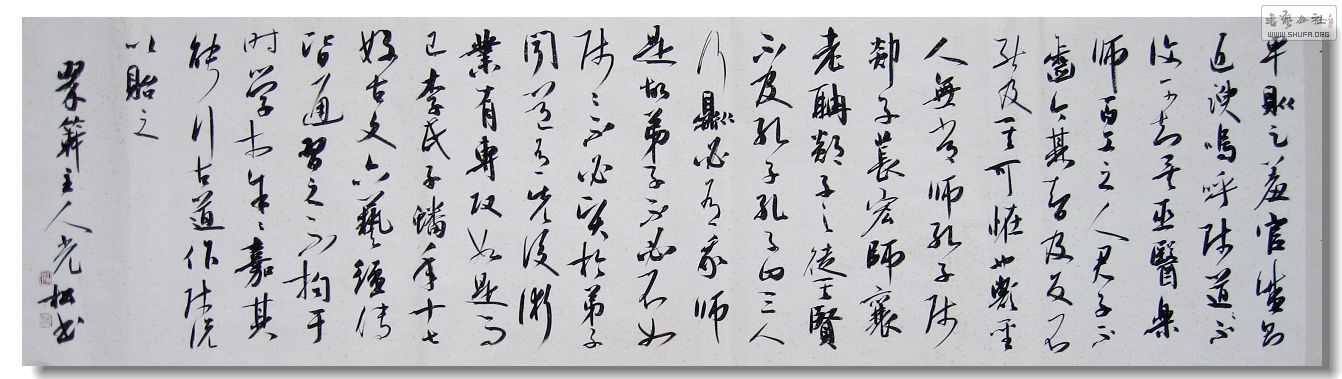 卑則足羞官盛則
近諛嗚呼师道之不
復可知矣巫醫樂
师百工之人君子不
齒今其智乃反不
能及其可怪也歟聖
人無常师孔子师
郯子萇宏师襄
老聃郯子之徒其賢
不及孔子孔子曰三人
行則必有我师
是故弟子不必不如
师师不必賢於弟子
聞道有先後術
業有專攻如是而
已李氏子蟠年十七
好古文六藝經傳
皆通習之不拘于
时学於余余嘉其
能行古道作师说
以貽之
主人光松书
书艺公社
WWW.SHUFA.ORG